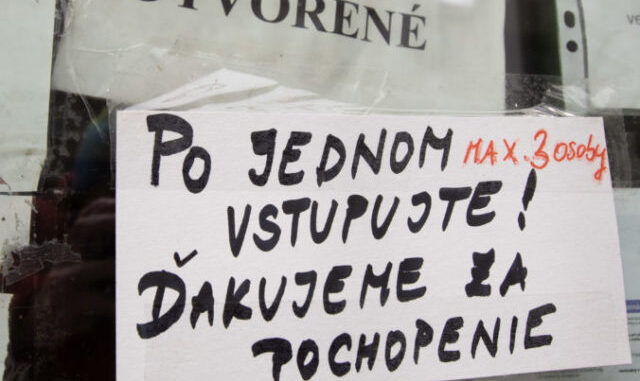 OTVORENÉ
PO JEDNOM MAX. 3 osoby
VSTUPUJTE!
ĎAKUJEME ZA
POCHOPENIE